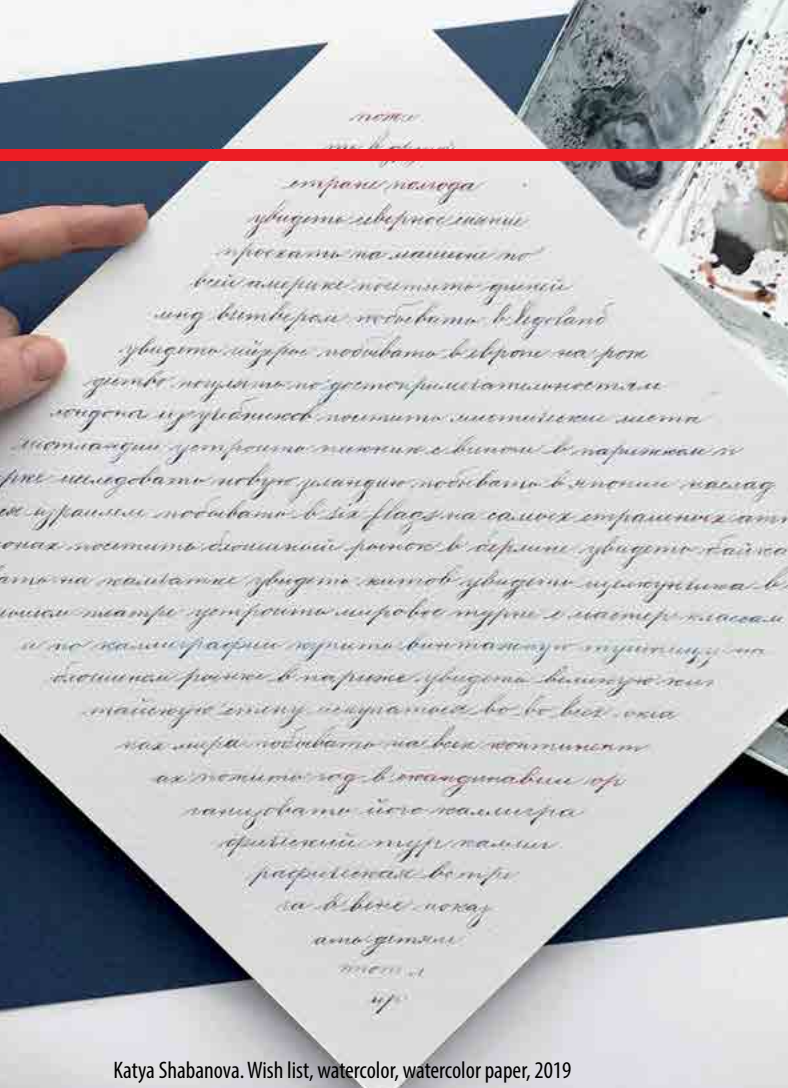 пожи
ть в другой
стране полгода
увидеть северное сияние
проехать на машине по
всей америке посетить дисней
лэнд вживую побывать в Legoland
увидеть айсберг побывать в европе на рож
дество погулять по достопримечательностям
лондона из учебников посетить мистические места
шотландии устроить пикник с вином в парижском п
арке исследовать новую зеландию побывать в японии наслад
израилем побывать в six flags на самых страшных атт
ионах посетить блошиный рынок в берлине увидеть байка
на камчатке увидеть китов увидеть щелкунчика в
большом театре устроить мировое турне с мастер классам
и по каллиграфии купить винтажную чернильницу на
блошином рынке в париже увидеть великую ки
тайскую стену искупаться во всех океа
нах мира побывать на всех континент
ах пожить год в скандинавии ор
ганизовать йога каллигра
фический тур каллиг
рафическая встре
ча в вене показ
ать детям
этот м
ир
Katya Shabanova. Wish list, watercolor, watercolor paper, 2019